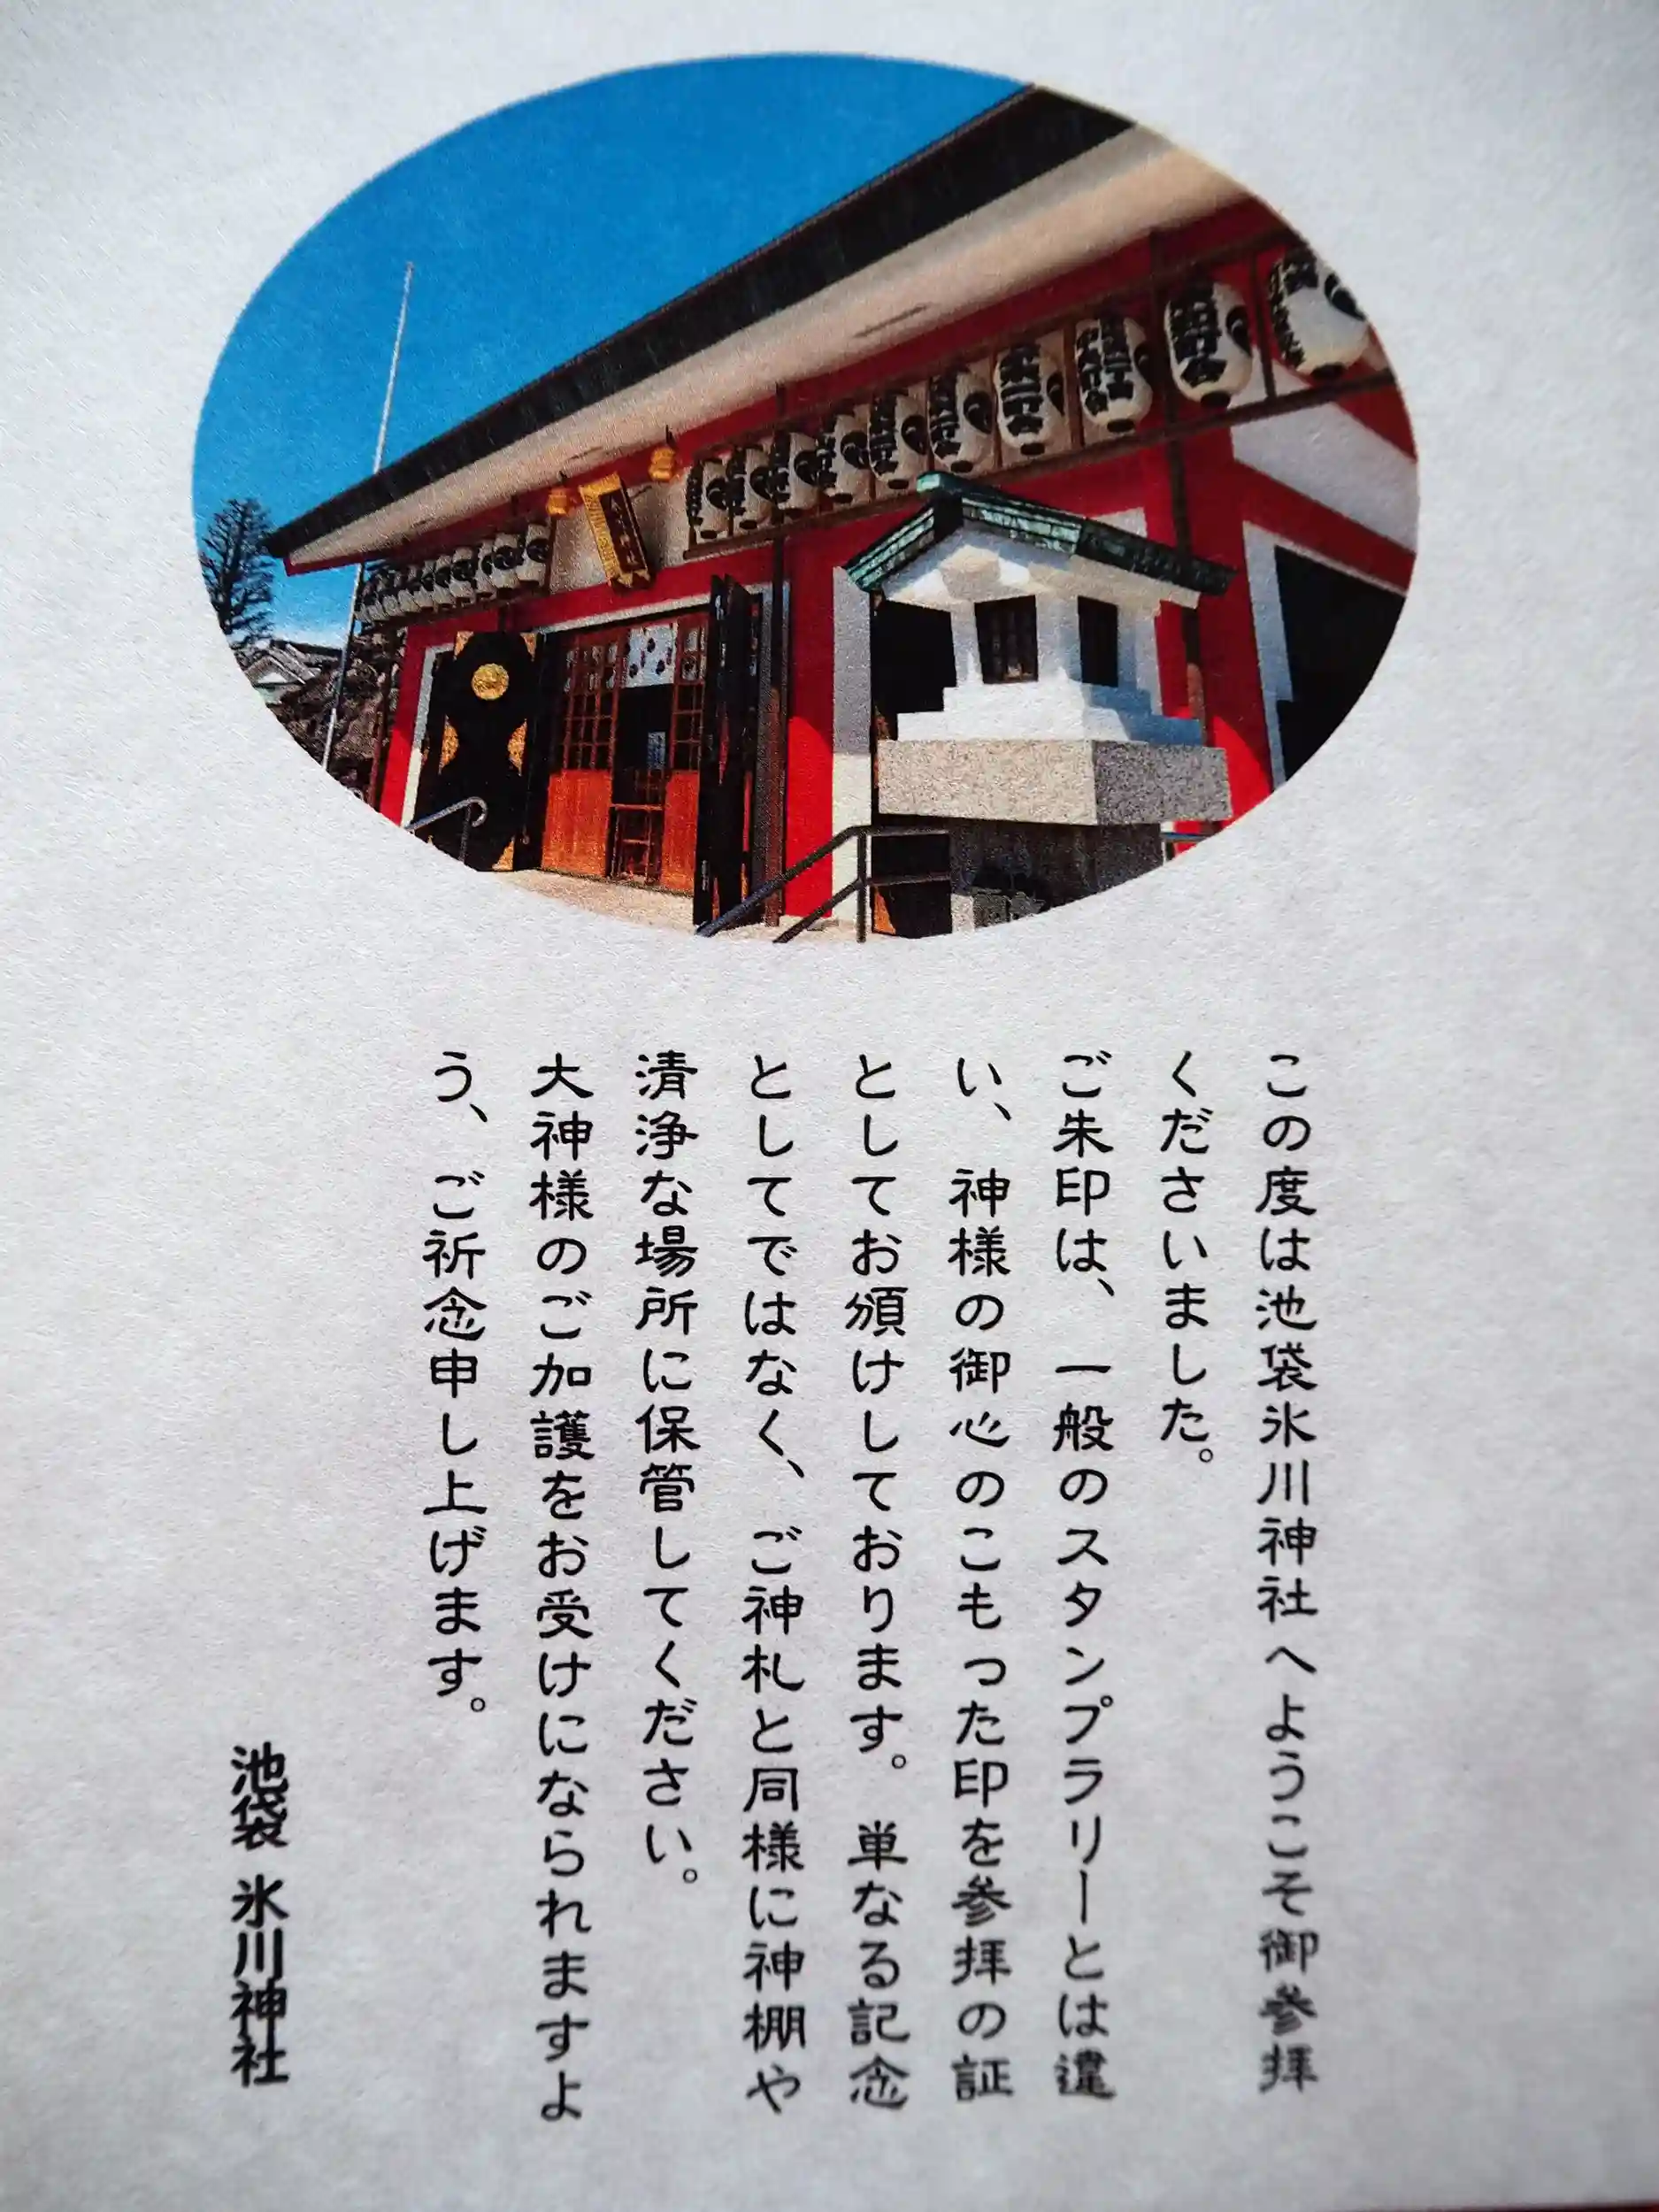 この度は池袋氷川神社へようこそ御参拝
くださいました。
ご朱印は、一般のスタンプラリーとは違
い、神様の御心のこもった印を参拝の証
としてお頒けしております。単なる記念
としてではなく、ご神札と同様に神棚や
清浄な場所に保管してください。
大神様のご加護をお受けになられますよ
う、ご祈念申し上げます。
池袋 氷川神社